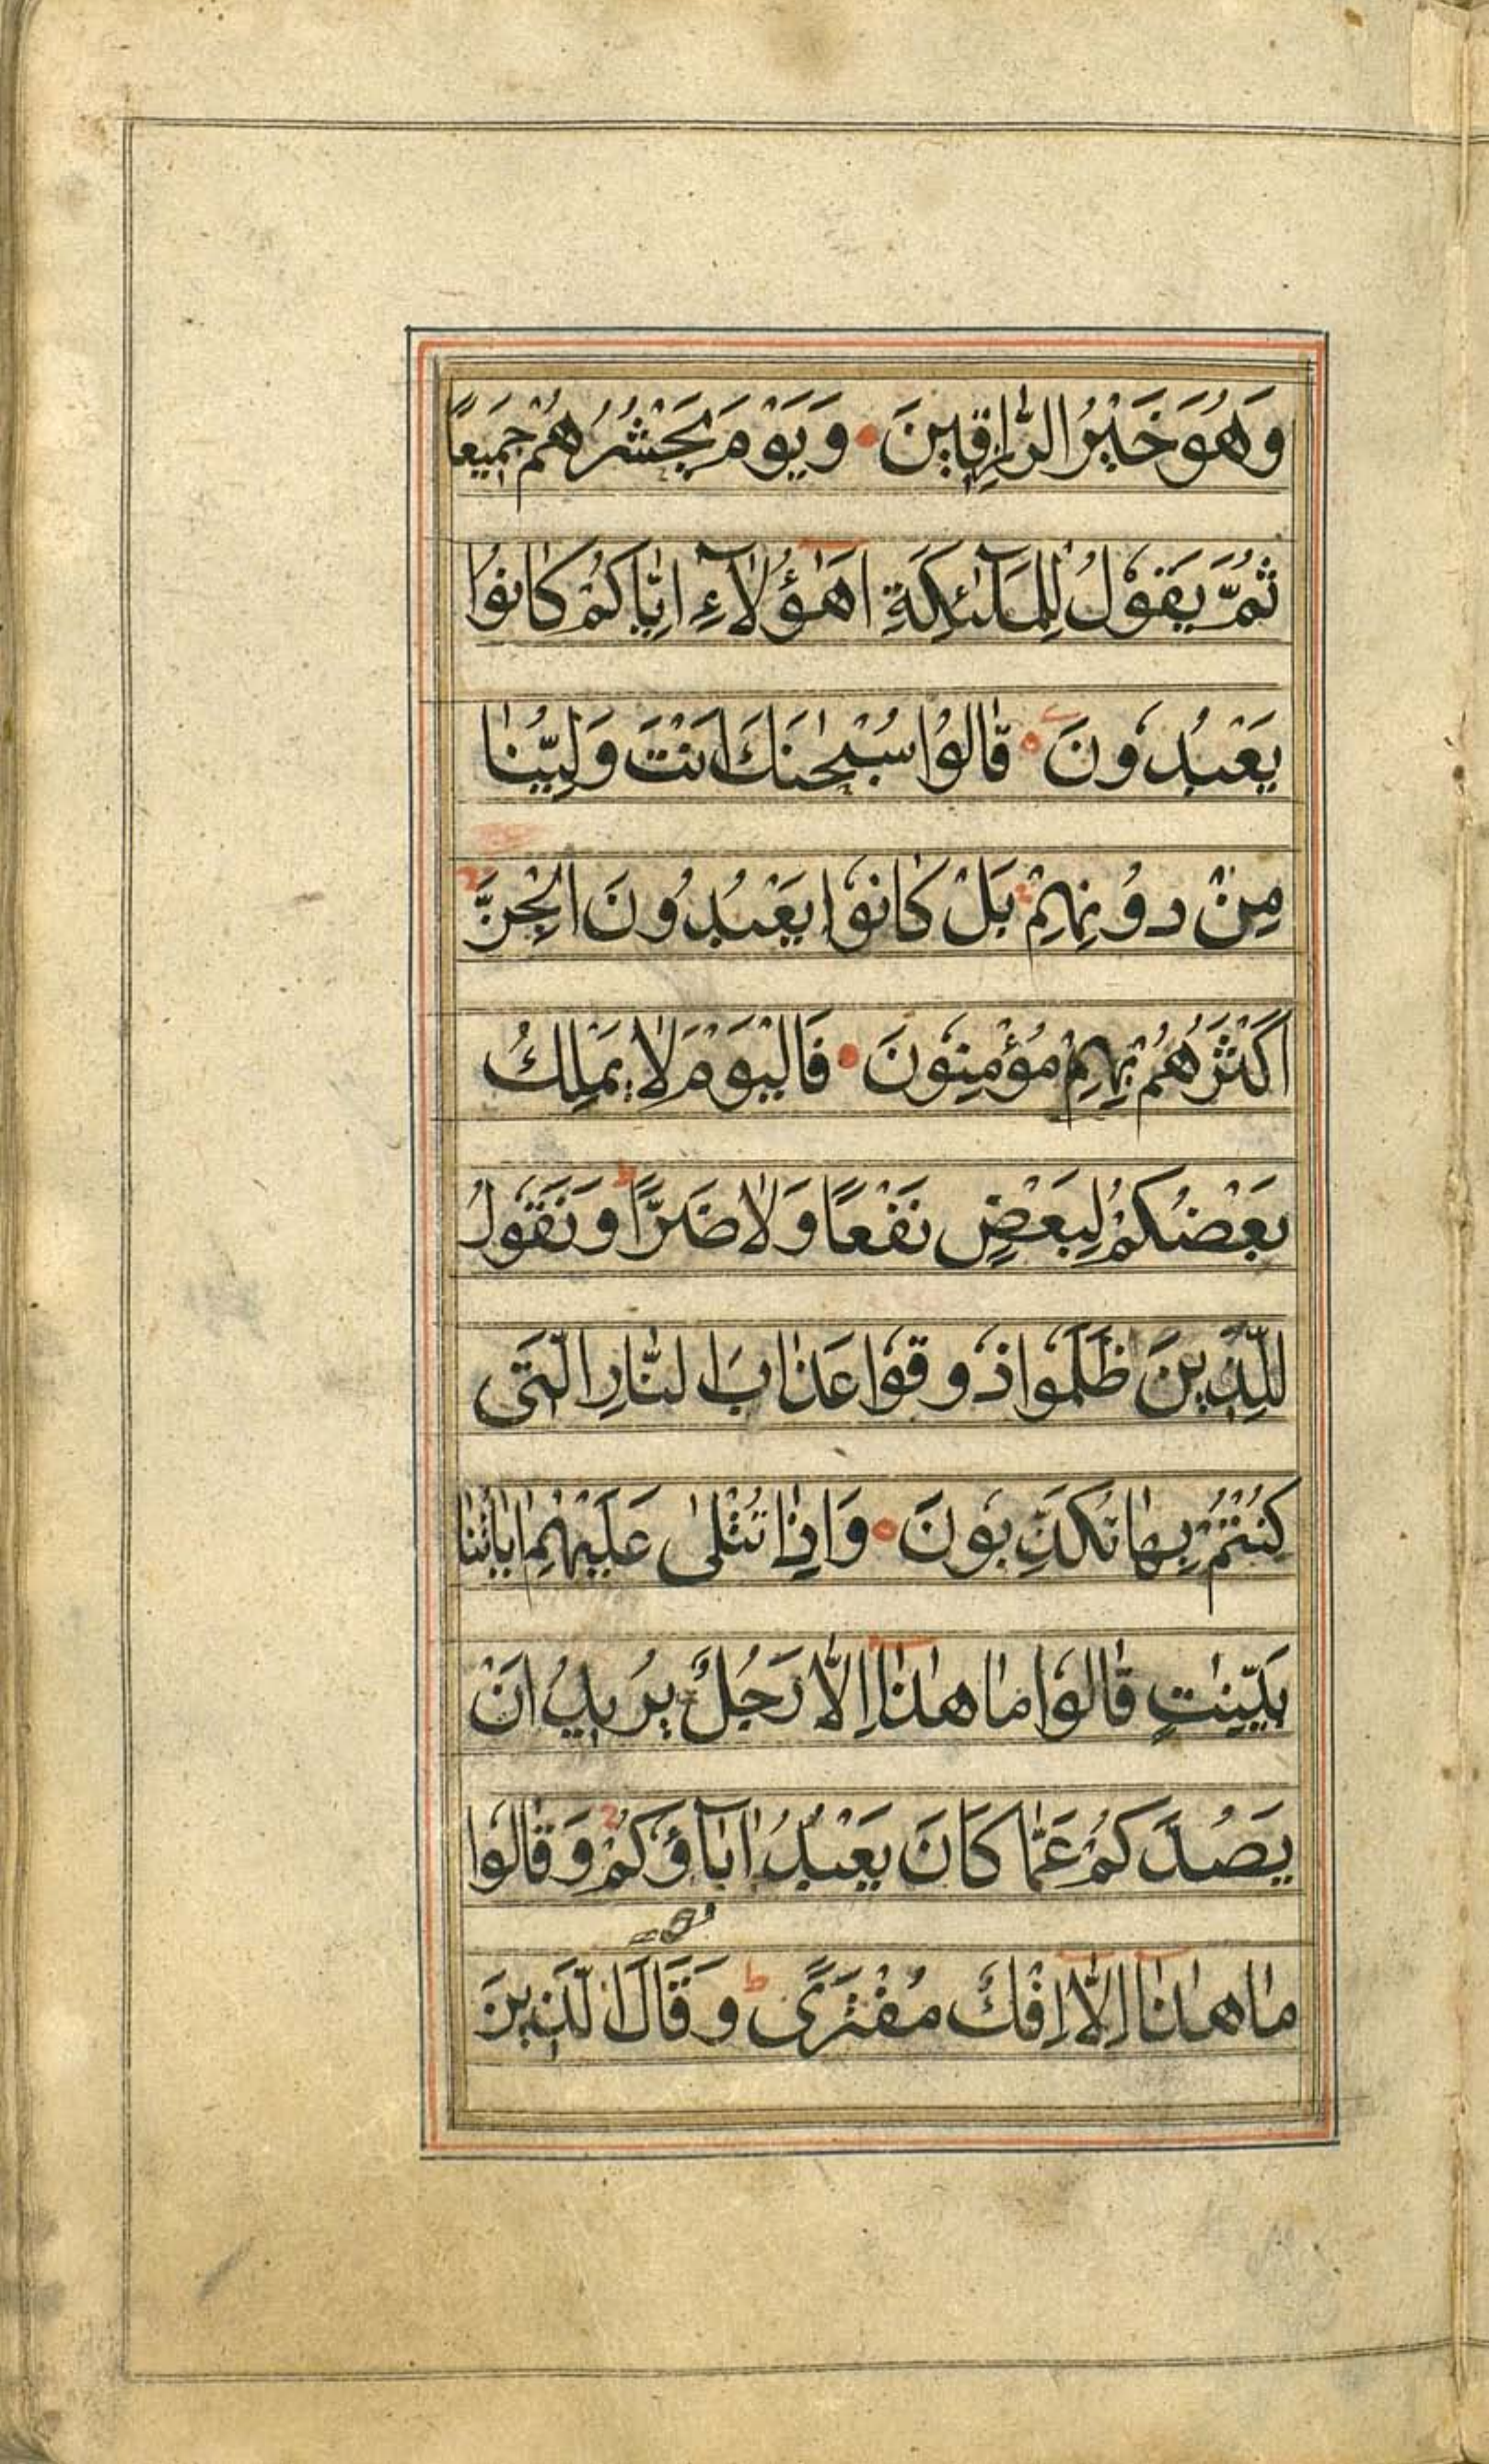 وَهُوَ خَيْرُ الرّٰازِقٖينَ وَيَوْمَ يَحْشُرُهُمْ جَمٖيعًا
ثُمَّ يَقُولُ لِلْمَلٰٓئِكَةِ اَهٰٓؤُلَآءِ اِيّٰاكُمْ كٰانُوا
يَعْبُدُونَ قٰالُوا سُبْحٰنَكَ اَنْتَ وَلِيُّنٰا
مِنْ دُونِهِمْ بَلْ كٰانُوا يَعْبُدُونَ الْجِنَّ
اَكْثَرُهُمْ بِهِمْ مُؤْمِنُونَ فَالْيَوْمَ لٰا يَمْلِكُ
بَعْضُكُمْ لِبَعْضٍ نَفْعًا وَلٰا ضَرًّا وَنَقُولُ
لِلَّذٖينَ ظَلَمُوا ذُوقُوا عَذٰابَ النّٰارِ الَّتٖى
كُنْتُمْ بِهٰا تُكَذِّبُونَ وَاِذٰا تُتْلٰى عَلَيْهِمْ اٰيٰاتُنٰا
بَيِّنٰتٍ قٰالُوا مٰا هٰذٰا اِلّٰا رَجُلٌ يُرٖيدُ اَنْ
يَصُدَّكُمْ عَمّٰا كَانَ يَعْبُدُ اٰبٰآؤُكُمْ وَقٰالُوا
مٰا هٰذٰا اِلّٰا اِفْكٌ مُفْتَرًى وَقَالَ الَّذٖينَ